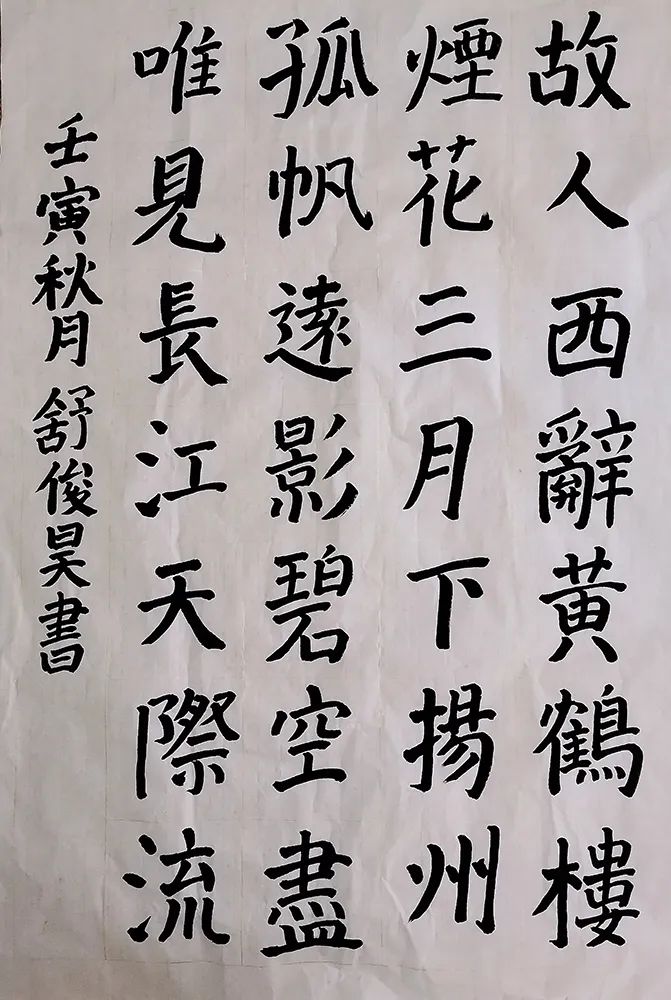 故人西辭黃鶴樓
煙花三月下揚州
孤帆遠影碧空盡
唯見長江天際流
壬寅秋月舒俊昊書